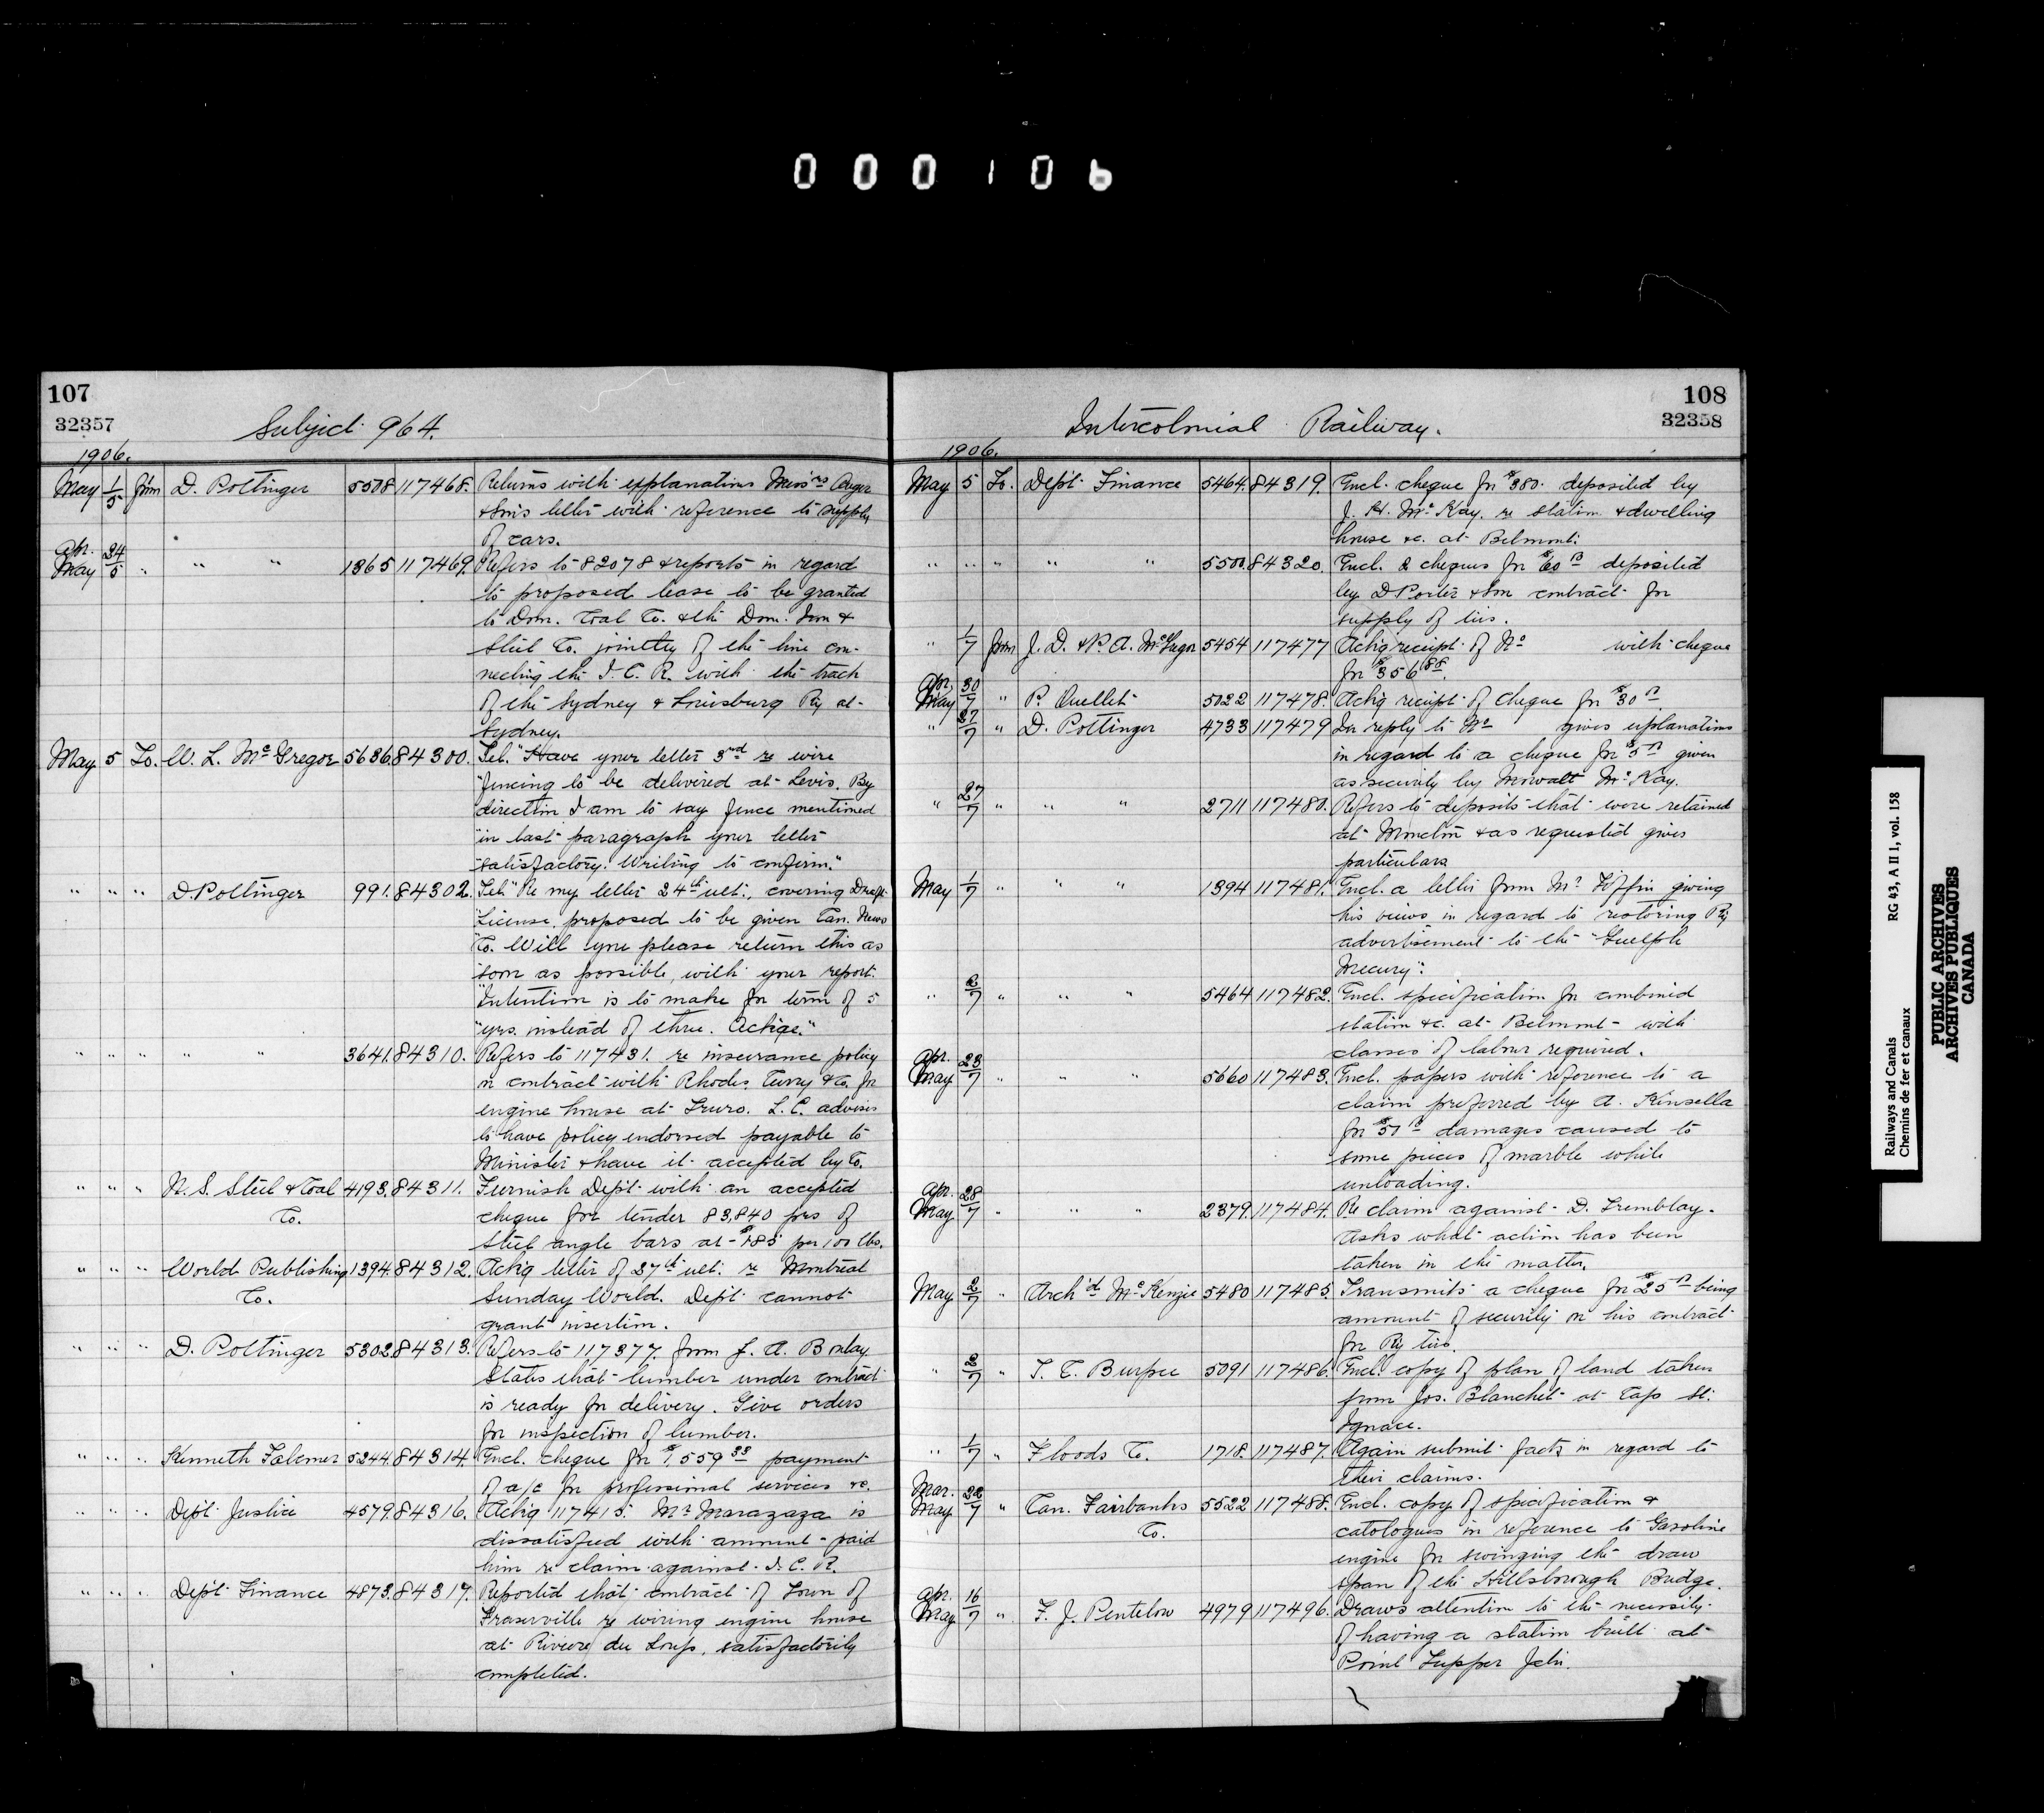 000106
107
32357
Subject 964.
1906.
May 1/5 from D. Pottinger 5508 117468. Returns with explanations Messrs
& Sons letter with reference to supply
of cars.
Apr. 24
May 5 " " " 1365 117469. Refers to 82078 & reports in regard
to proposed lease to be granted
to Dom. Coal Co. & the Dom. Iron &
Steel Co. jointly of the line con-
necting the I. C. R. with the track
of the Sydney & Louisburg Ry at
Sydney.
May 5 To. W. L. McGregor 5636 84300. Tel. "Have your letter 3rd re wire
"fencing to be delivered at Levis. By
direction I am to say fence mentioned
"in last paragraph your letter
"satisfactory. Writing to confirm."
" " " D. Pottinger 991. 84302. Tel. "Re my letter 24th ult. covering Draft
"License proposed to be given Can. News
"Co. Will you please return this as
"soon as possible with your report.
"Intention is to make for term of 5
"yrs. instead of three. Ackge."
" " " " " 3641. 84310. Refers to 117431. re insurance policy
on contract with Rhodes, Curry & Co. for
engine house at Truro. L. C. advises
to have policy endorsed payable to
Minister & have it accepted by Co.
" " " N. S. Steel & Coal 4193. 84311. Furnish Dept. with an accepted
Co. cheque for tender 83,840 prs of
steel angle bars at $1.85 per 100 lbs.
" " " World Publishing 1394. 84312. Ackg letter of 27th ult. re Montreal
Co. Sunday World. Dept. cannot
grant insertion.
" " " D. Pottinger 5302. 84313. Refers to 117377. from J. A.
States that lumber under contract
is ready for delivery. Give orders
for inspection of lumber.
" " " Kenneth Falconer 5244. 84314. Encl. cheque for $1,559 33 payment
of a/c for professional services &c.
" " " Dept. Justice 4579. 84316. Ackg 117415. Mr Marazaza is
dissatisfied with amount paid
him re claim against I. C. R.
" " " Dept. Finance 4873. 84317. Reported that contract of Town of
Fraserville re wiring engine house
at Riviere du Loup, satisfactorily
completed.
108
32358
Intercolonial Railway.
1906.
May 5 To. Dept. Finance 5464. 84319. Encl. cheque for $380. deposited by
J. H. McKay. re station & dwelling
house &c. at Belmont.
" " " " " 5500. 84320. Encl. 2 cheques for $60 deposited
by D Porter & Son contract for
supply of ties.
" 1/7 from J. D. & P. A. McGregor 5454 117477 Ackg receipt of No with cheque
for $356 88.
Apr. 30
May 7 " P. Ouellet 5022 117478. Ackg receipt of cheque for $30
" 27/7 " D. Pottinger 4733 117479 In reply to No gives explanations
in regard to a cheque for $5 given
as security by Mowatt McKay.
" 27/7 " " " 2711 117480. Refers to deposits that were retained
at Moncton & as requested gives
particulars
May 1/7 " " " 1394 117481. Encl. a letter from Mr Tiffin giving
his views in regard to restoring Ry
advertisement to the "Guelph
Mecury".
" 2/7 " " " 5464 117482. Encl. specification for combined
station &c. at Belmont with
classes of labour required.
Apr. 23
May 7 " " " 5660 117483. Encl. papers with reference to a
claim preferred by A. Kinsella
for $51 damages caused to
some pieces of marble while
unloading.
Apr. 28
May 7 " " " 2379. 117484. Re claim against D. Tremblay.
Asks what action has been
taken in the matter.
May 2/7 " Arch'd McKenzie 5480 117485. Transmits a cheque for $25 being
amount of security on his contract
for Ry ties.
" 2/7 " T. C. Burpee 5091 117486. Encl. copy of plan of land taken
from Jos. Blanchet at Cap St.
Ignace.
" 1/7 " Floods Co. 1718. 117487. Again submit facts in regard to
their claims.
Mar. 22
May 7 " Can. Fairbanks 5522 117488. Encl. copy of specification &
Co. catologues in reference to Gasoline
engine for swinging the draw
span of the Hillsborough Bridge.
Apr. 16
May 7 " F. J. Pentelow 4979 117496. Draws attention to the necessity
of having a station built at
Point Tupper Jctn.
Railways and Canals RG 43, A II 1, vol. 158
Chemins de fer et canaux
PUBLIC ARCHIVES
ARCHIVES PUBLIQUES
CANADA